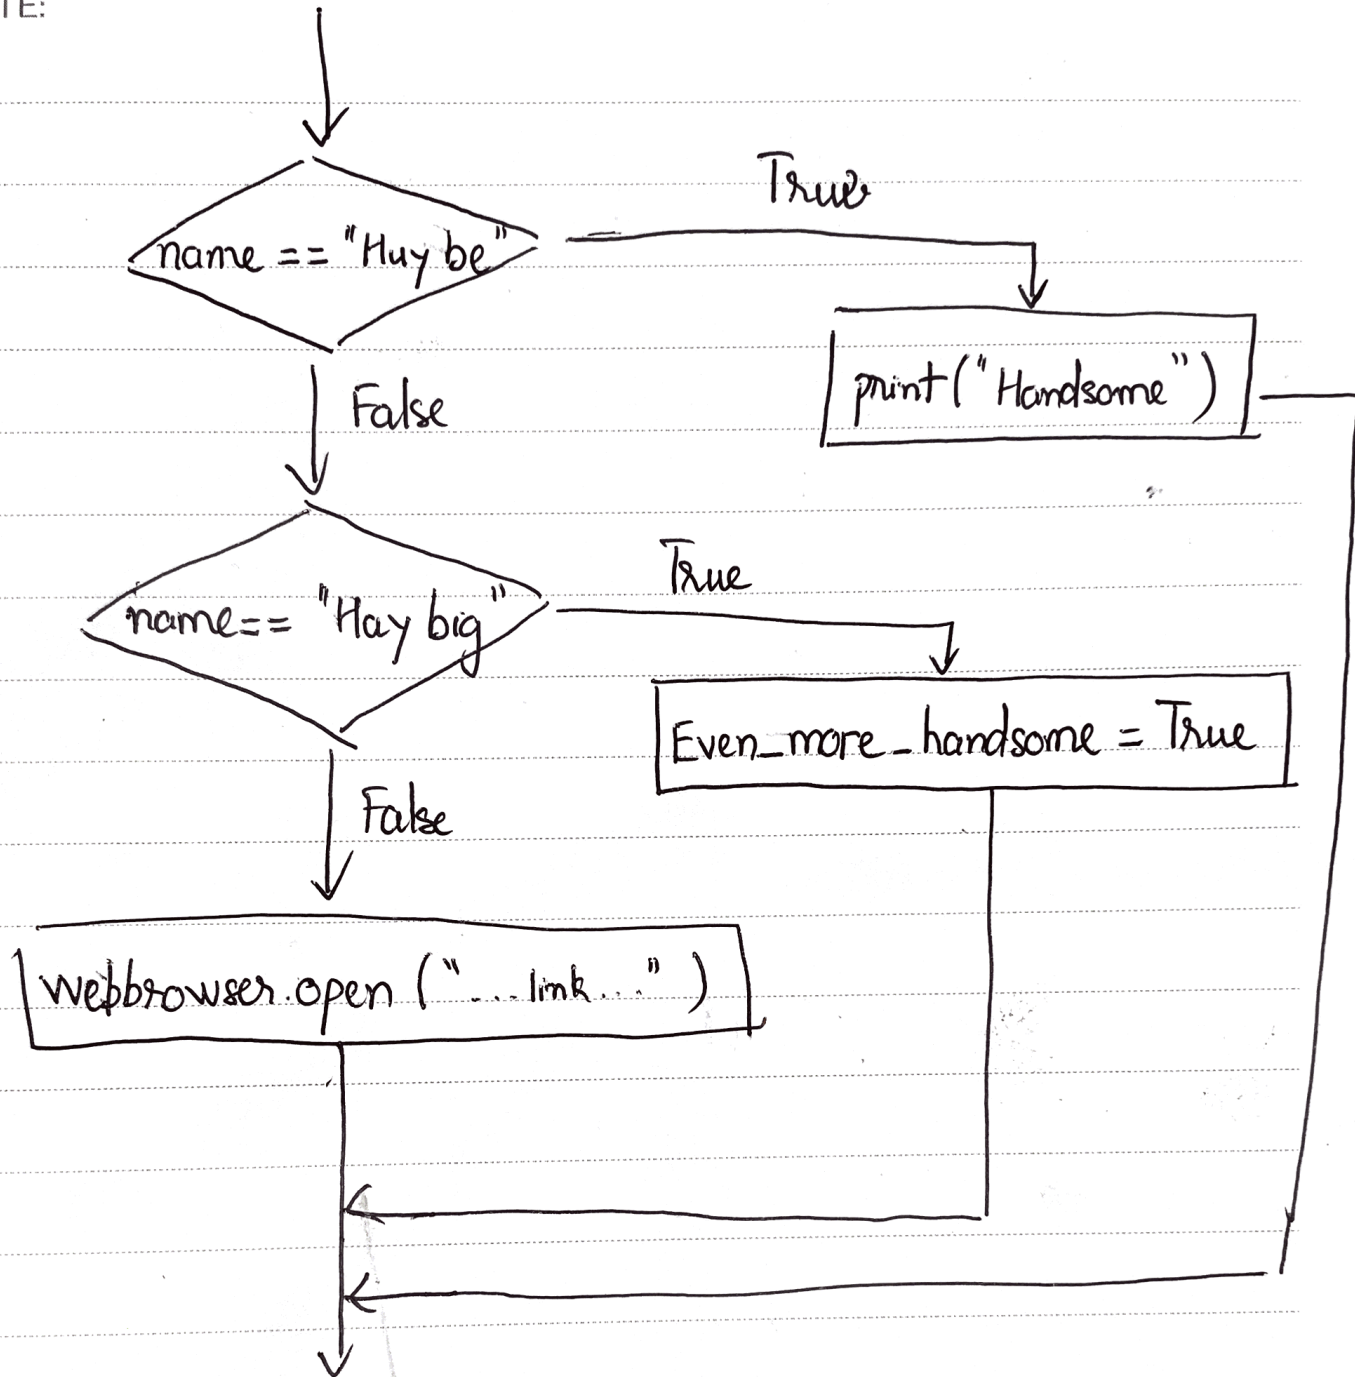 TE:
True
name == "Huy be"
False
print("Handsome")
True
name== "Hay big"
Even_more_handsome = True
False
webbrowser.open ("...link...")